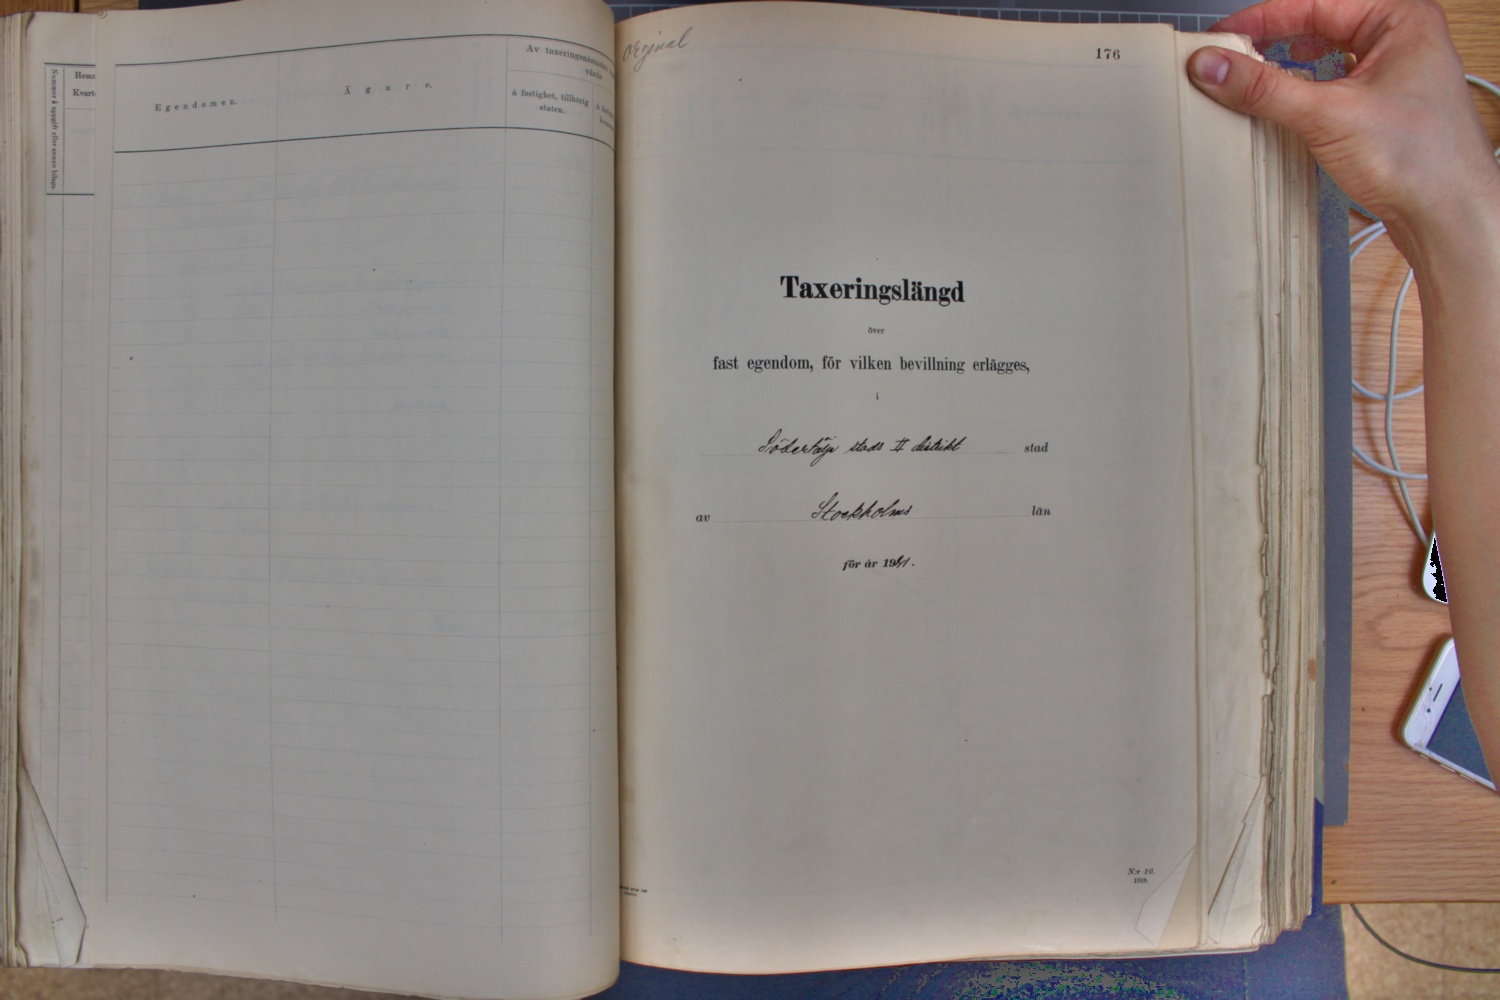 Nummer å uppgift eller annan bilaga
Egendomen.
Ägare.
Av taxeringsnämnden
värde
å fastighet, tillhörig
staten.
Original
176
Taxeringslängd
över
fast egendom, för vilken bevillning erlägges,
i
Södertälje stads II distrikt stad
av Stockholms län
för år 19
N:r 10.
1918.